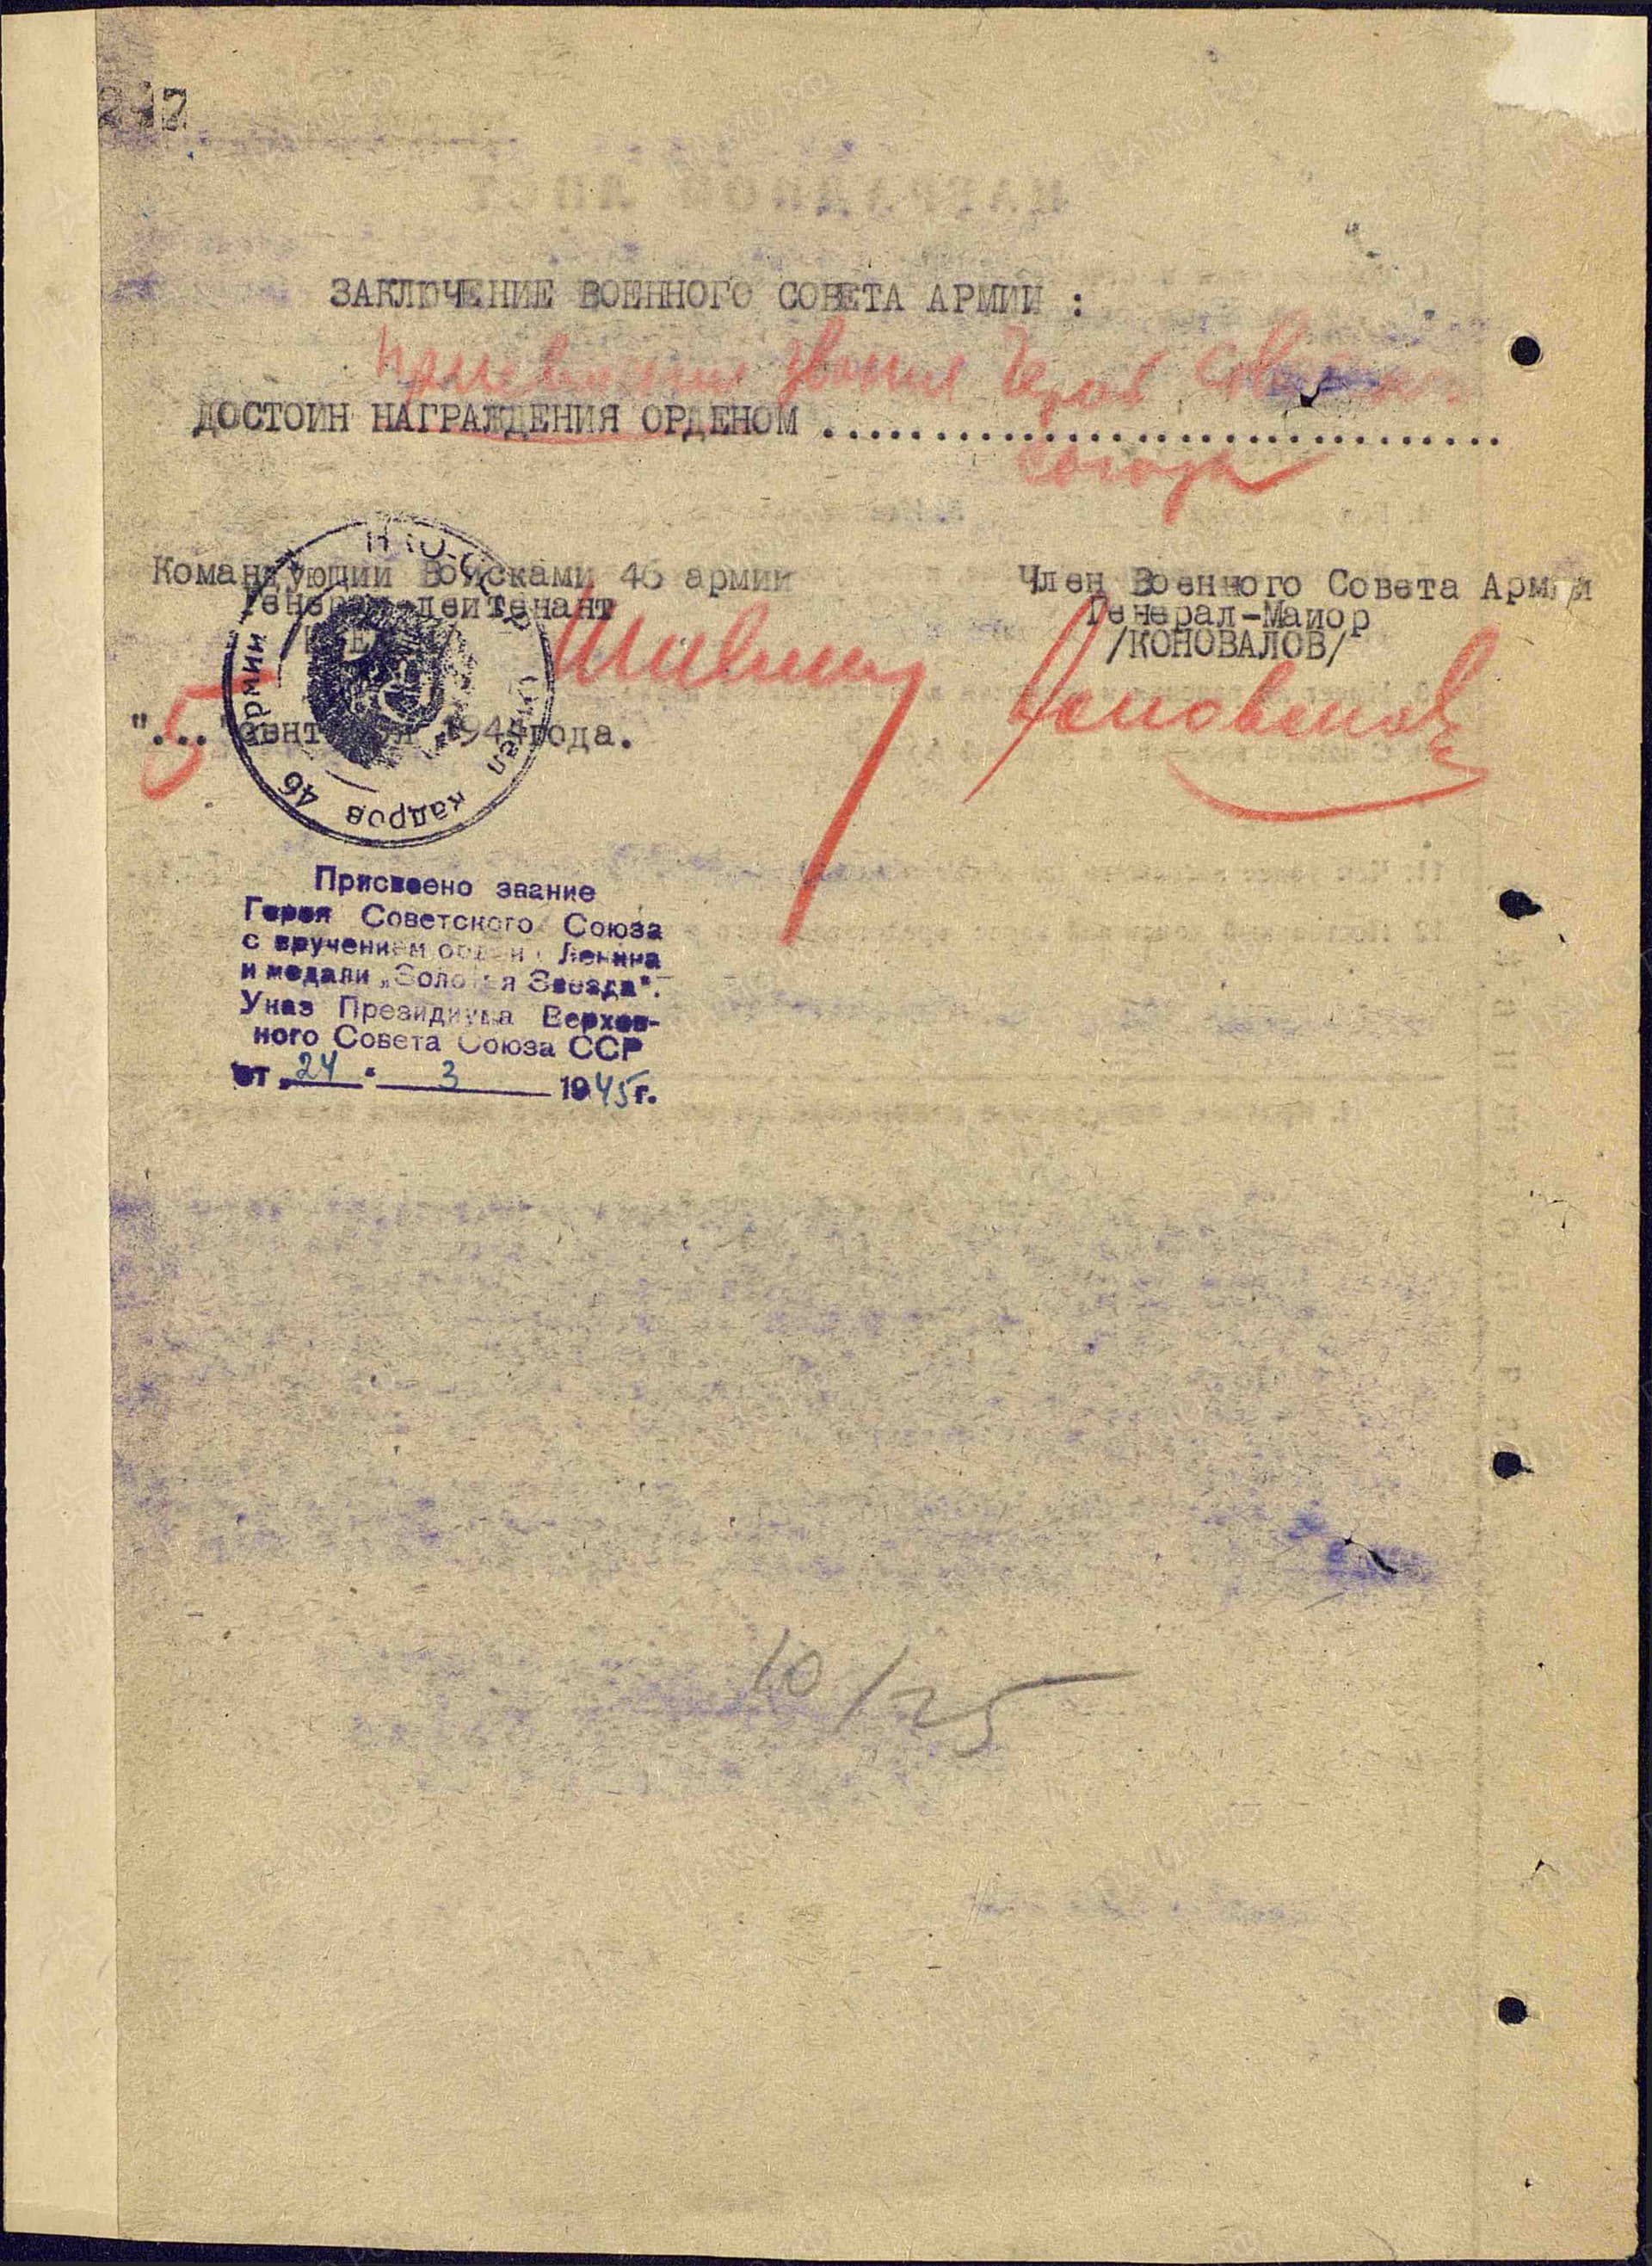 ЗАКЛЮЧЕНИЕ ВОЕННОГО СОВЕТА АРМИИ :
присвоения звания Герой Советского
ДОСТОИН НАГРАЖДЕНИЯ ОРДЕНОМ ...............................
Союза
Командующий Войсками 46 армии
Генерал-лейтенант
Член Военного Совета Армии
Генерал-Майор
/КОНОВАЛОВ/
"5" сентября 1944 года.
Отдел кадров 46 армии
Присвоено звание
Героя Советского Союза
с вручением ордена Ленина
и медали „Золотая Звезда".
Указ Президиума Верхов-
ного Совета Союза ССР
от „24" 3 1945 г.
10/25